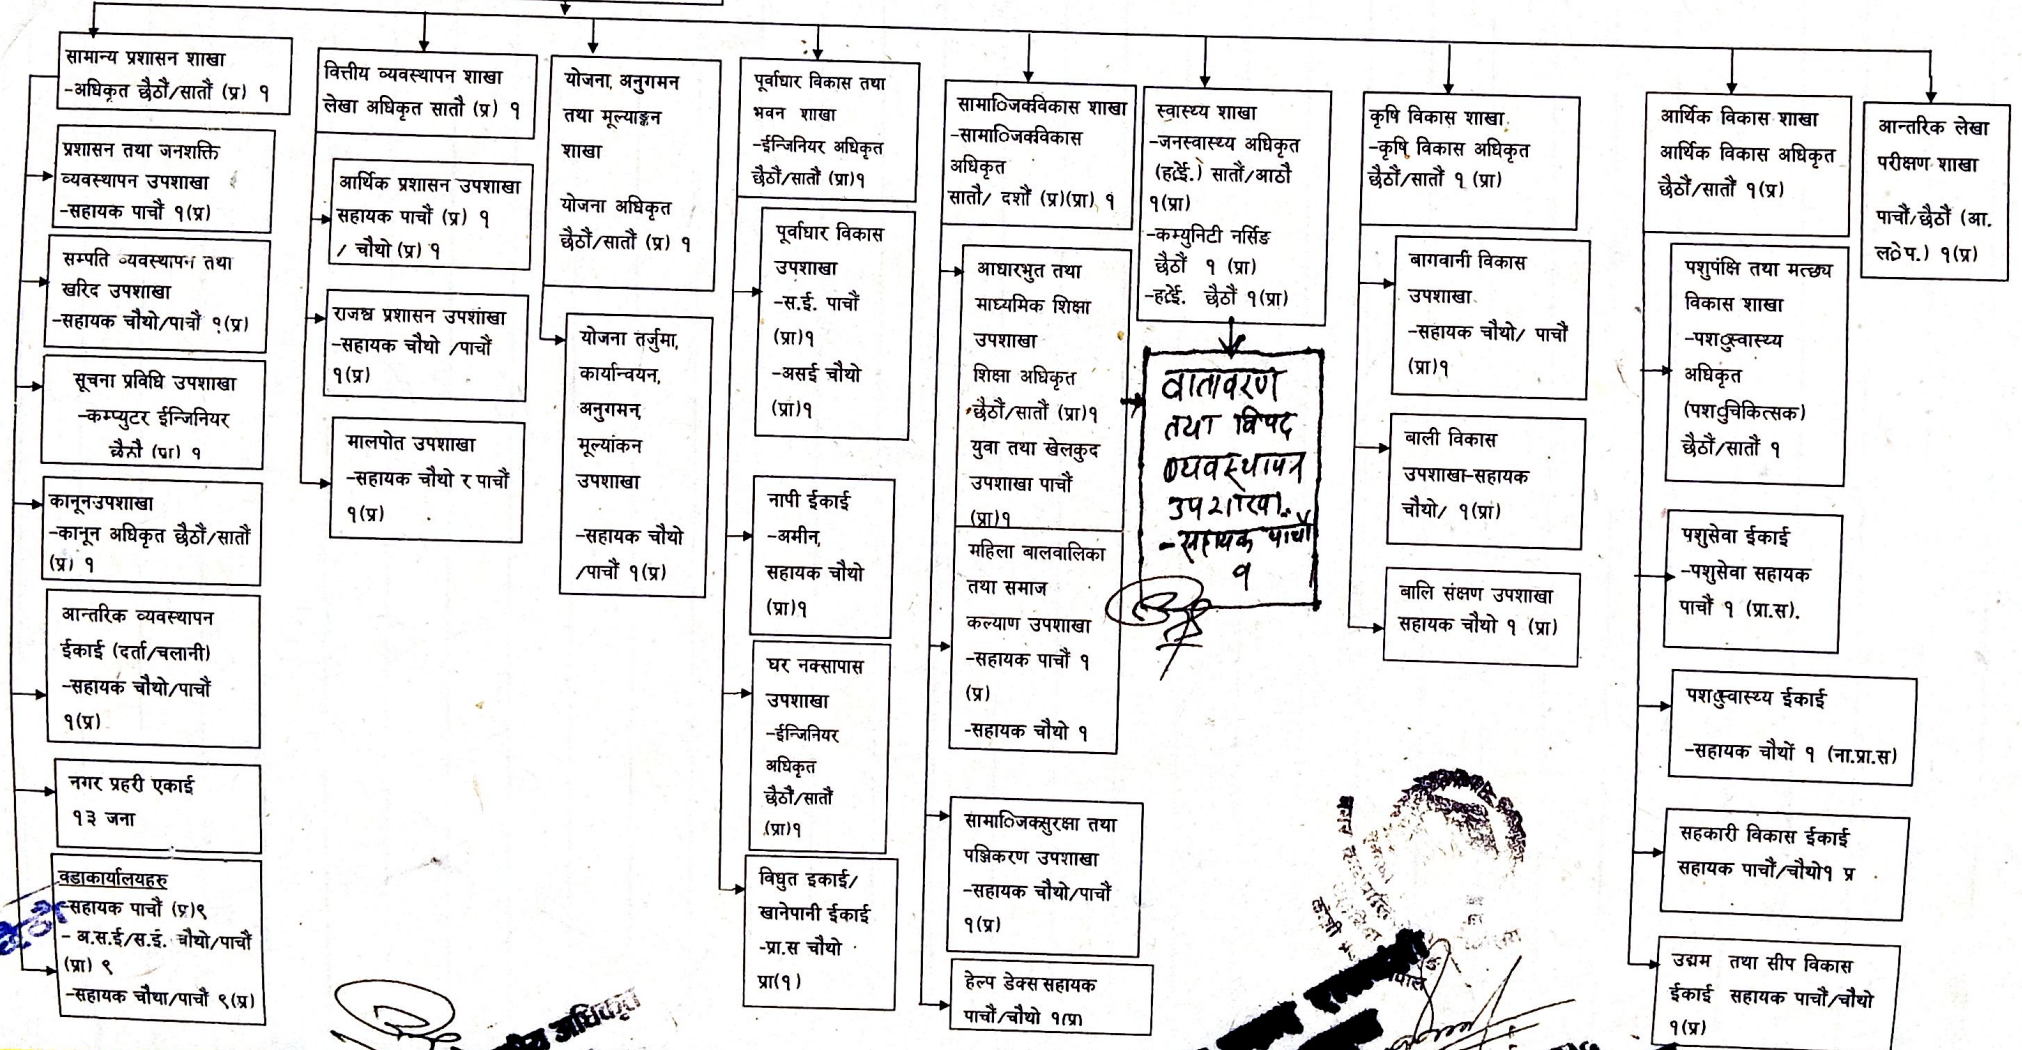 सामान्य प्रशासन शाखा
-अधिकृत छैठौं/सातौं (प्र) १
प्रशासन तथा जनशक्ति
व्यवस्थापन उपशाखा
-सहायक पाचौं १(प्र)
सम्पति व्यवस्थापन तथा
खरिद उपशाखा
-सहायक चौथो/पाचौं १(प्र)
सूचना प्रविधि उपशाखा
-कम्प्युटर ईन्जिनियर
छैठौं (प्रा) १
कानून उपशाखा
-कानून अधिकृत छैठौं/सातौं
(प्र) १
आन्तरिक व्यवस्थापन
ईकाई (दर्ता/चलानी)
-सहायक चौथो/पाचौं
१(प्र)
नगर प्रहरी एकाई
१३ जना
वडाकार्यालयहरु
-सहायक पाचौं (प्र)९
- अ.स.ई/स.ई. चौथो/पाचौं
(प्रा) ९
-सहायक चौथा/पाचौं ९(प्र)
वित्तीय व्यवस्थापन शाखा
लेखा अधिकृत सातौ (प्र) १
आर्थिक प्रशासन उपशाखा
सहायक पाचौं (प्र) १
/ चौथो (प्र) १
राजश्व प्रशासन उपशाखा
-सहायक चौथो /पाचौं
१(प्र)
मालपोत उपशाखा
-सहायक चौथो र पाचौं
१(प्र)
योजना, अनुगमन
तथा मूल्याङ्कन
शाखा
योजना अधिकृत
छैठौं/सातौं (प्र) १
योजना तर्जुमा,
कार्यान्वयन,
अनुगमन,
मूल्यांकन
उपशाखा
-सहायक चौथो
/पाचौं १(प्र)
पूर्वाधार विकास तथा
भवन शाखा
-ईन्जिनियर अधिकृत
छैठौं/सातौं (प्रा)१
पूर्वाधार विकास
उपशाखा
-स.ई. पाचौं
(प्रा)१
-असई चौथो
(प्रा)१
नापी ईकाई
-अमीन,
सहायक चौथो
(प्रा)१
घर नक्सापास
उपशाखा
-ईन्जिनियर
अधिकृत
छैठौं/सातौं
(प्रा)१
विधुत इकाई/
खानेपानी ईकाई
-प्रा.स चौथो
प्रा(१)
सामाजिक विकास शाखा
-सामाजिक विकास
अधिकृत
सातौ/ दशौं (प्र)(प्रा) १
आधारभुत तथा
माध्यमिक शिक्षा
उपशाखा
शिक्षा अधिकृत
छैठौं/सातौं (प्रा)१
युवा तथा खेलकुद
उपशाखा पाचौं
(प्रा)१
महिला बालवालिका
तथा समाज
कल्याण उपशाखा
-सहायक पाचौं १
(प्र)
-सहायक चौथो १
सामाजिक सुरक्षा तथा
पञ्जिकरण उपशाखा
-सहायक चौथो/पाचौं
१(प्र)
हेल्प डेक्स सहायक
पाचौं/चौथो १(प्र)
स्वास्थ्य शाखा
-जनस्वास्थ्य अधिकृत
(हेई.) सातौं/आठौ
१(प्रा)
-कम्युनिटी नर्सिङ
छैठौं १ (प्रा)
-हेई. छैठौं १(प्रा)
वातावरण
तथा विपद
व्यवस्थापन
उपशाखा
- सहायक पाचौं
१
कृषि विकास शाखा
-कृषि विकास अधिकृत
छैठौं/सातौं १ (प्रा)
बागवानी विकास
उपशाखा
-सहायक चौथो/ पाचौं
(प्रा)१
बाली विकास
उपशाखा-सहायक
चौथो/ १(प्रा)
बालि संक्षण उपशाखा
सहायक चौथो १ (प्रा)
आर्थिक विकास शाखा
आर्थिक विकास अधिकृत
छैठौं/सातौं १(प्र)
पशुपंक्षि तथा मत्छ्य
विकास शाखा
-पशु स्वास्थ्य
अधिकृत
(पशु चिकित्सक)
छैठौं/सातौं १
पशुसेवा ईकाई
-पशुसेवा सहायक
पाचौं १ (प्रा.स).
पशु स्वास्थ्य ईकाई
-सहायक चौथों १ (ना.प्रा.स)
सहकारी विकास ईकाई
सहायक पाचौं/चौथो१ प्र
उद्यम तथा सीप विकास
ईकाई सहायक पाचौं/चौथो
१(प्र)
आन्तरिक लेखा
परीक्षण शाखा
पाचौं/छैठौं (आ.
ले.प.) १(प्र)
अधिकृत